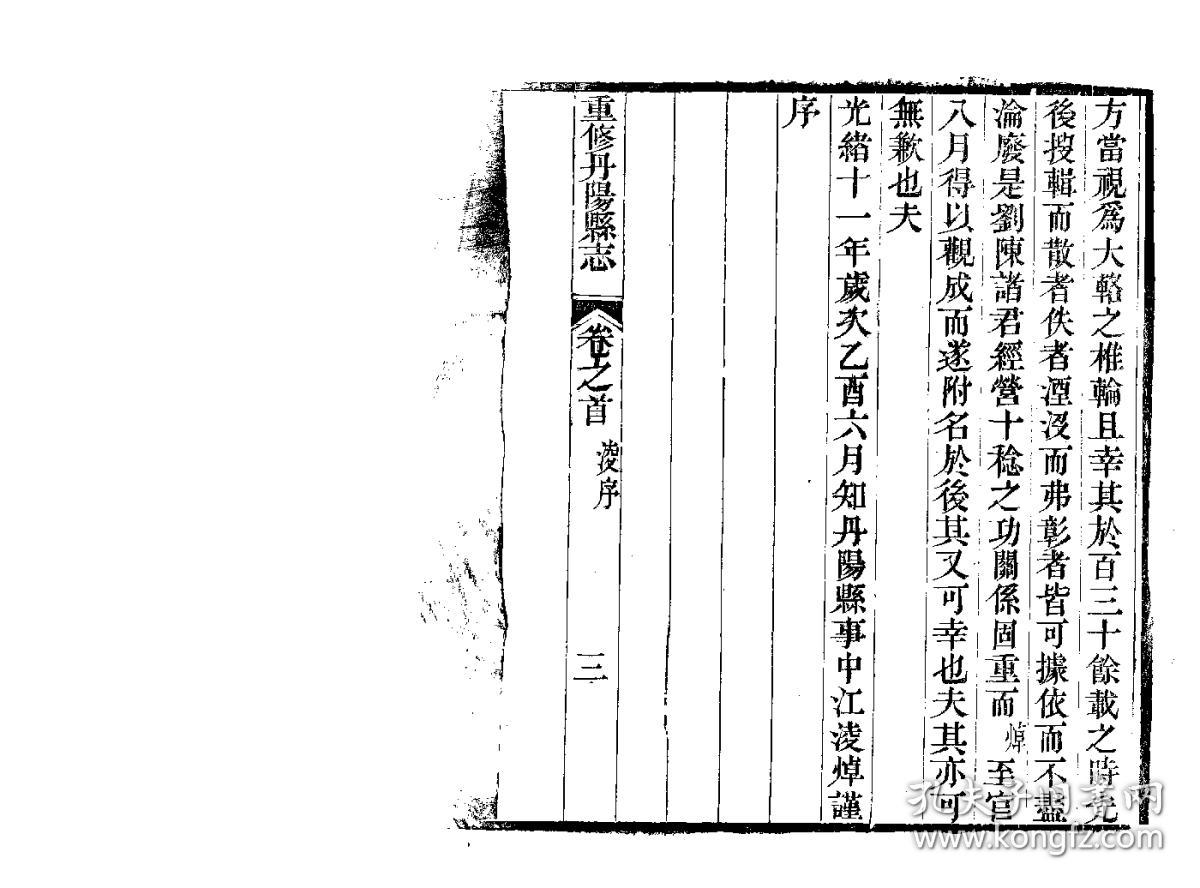 方當視爲大輅之椎輪且幸其於百三十餘載之時先
後搜輯而散者佚者湮沒而弗彰者皆可據依而不盡
淪廢是劉陳諸君經營十稔之功關係固重而焯至官
八月得以觀成而遂附名於後其又可幸也夫其亦可
無歉也夫
光緒十一年歲次乙酉六月知丹陽縣事中江淩焯謹
序
重修丹陽縣志 卷之首 淩序 三
孔夫子旧书网
www.kongfz.com